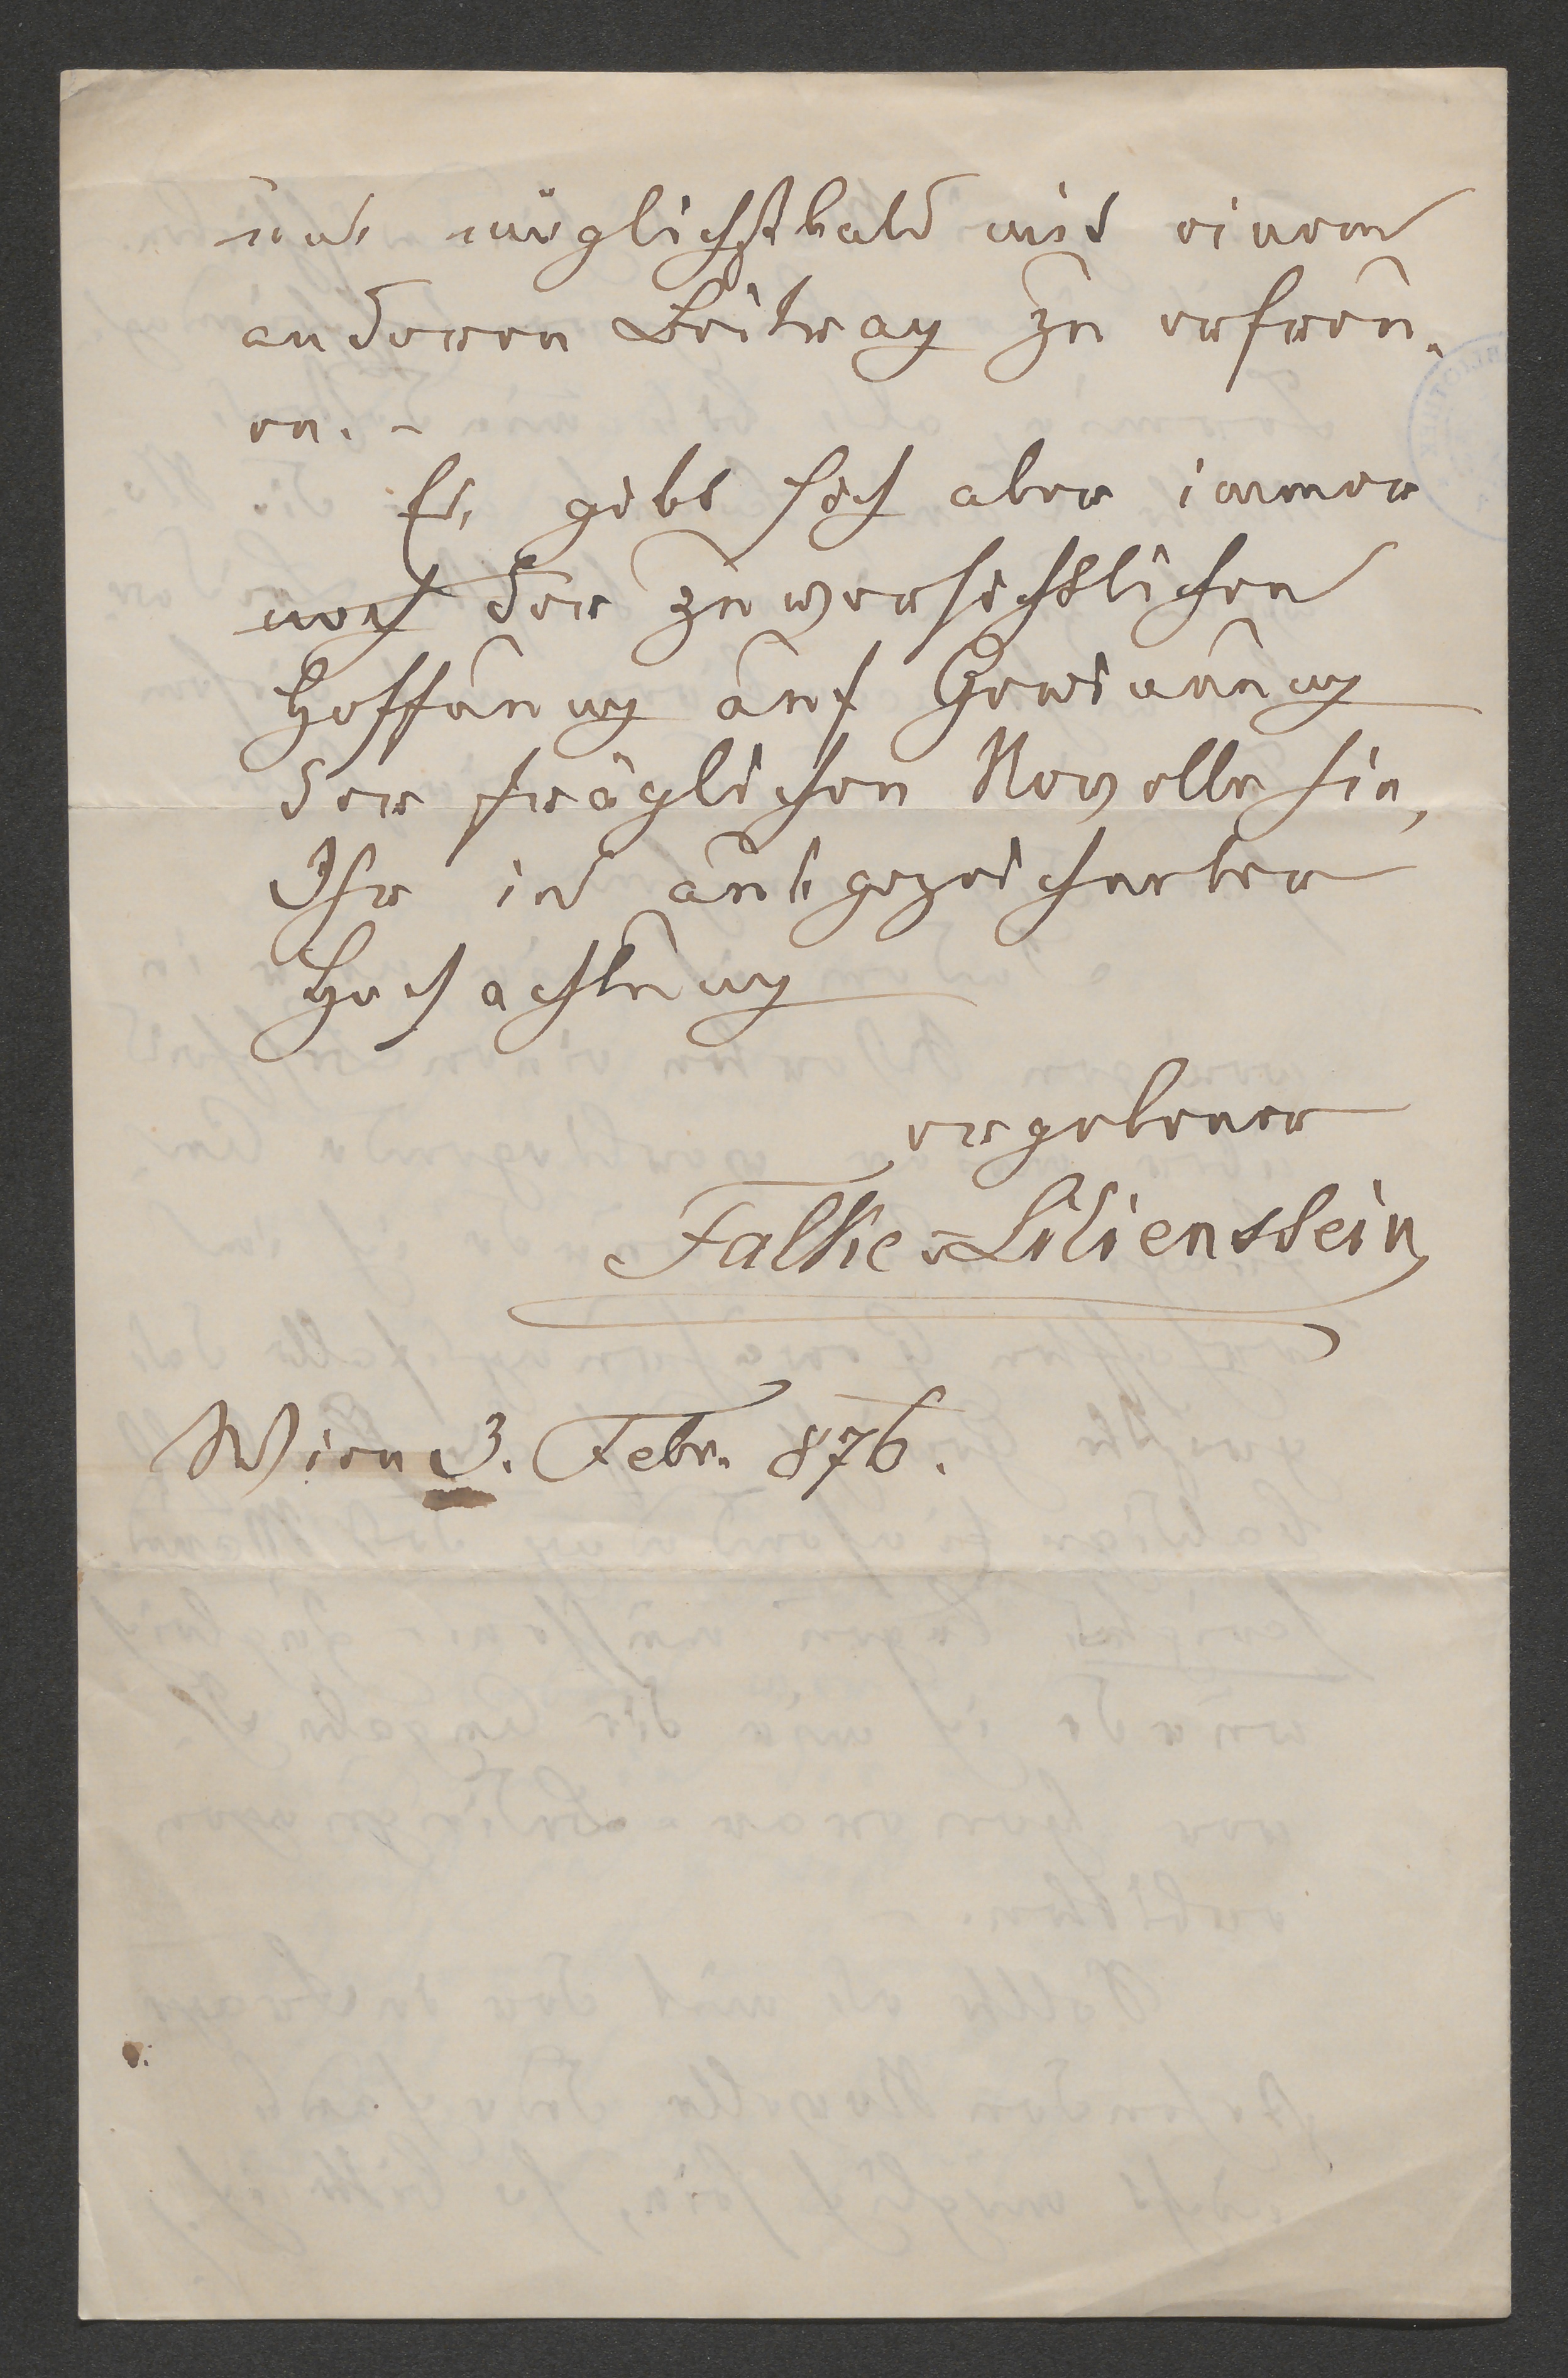 uns möglichst bald mit einem
anderen Beitrag zu erfreu-
en. –
Es gibt sich aber immer
noch der zuversichtlichen
Hoffnung auf Gewinnung
der fraglichen Novelle hin,
Ihr in ausgezeichneter
Hochachtung
ergebener
Falke v Lilienstein
Wien 3. Febr. 876.